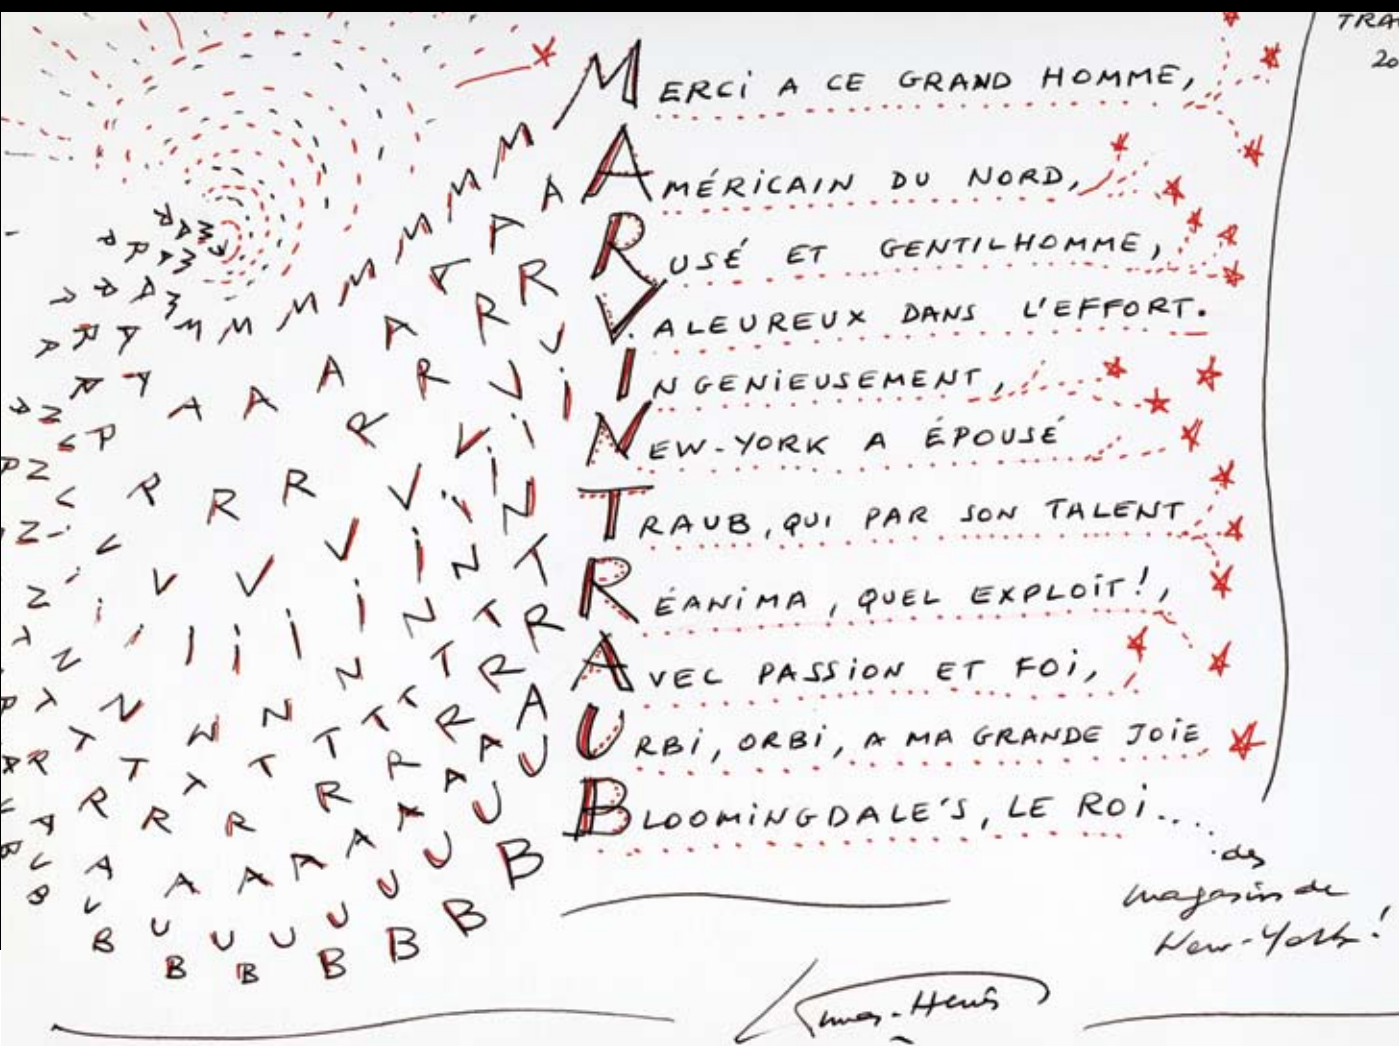 TRA
20
MERCI A CE GRAND HOMME,
AMÉRICAIN DU NORD,
RUSÉ ET GENTILHOMME,
VALEUREUX DANS L'EFFORT.
INGENIEUSEMENT,
NEW-YORK A ÉPOUSÉ
TRAUB, QUI PAR SON TALENT
RÉANIMA, QUEL EXPLOIT!,
AVEC PASSION ET FOI,
URBI, ORBI, A MA GRANDE JOIE
BLOOMINGDALE'S, LE ROI.....
des
magasins de
New-York!